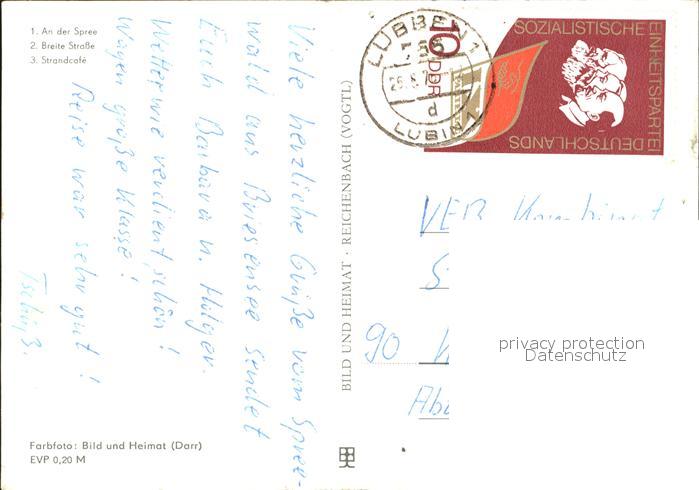 1. An der Spree
2. Breite Straße
3. Strandcafé
Viele herzliche Grüße vom Spree-
wald aus Briesensee sendet
Euch Barbara u. Holger.
Wetter wie verdient, schön!
Wagen große Klasse!
Reise war sehr gut!
Tschüß.
Farbfoto: Bild und Heimat (Darr)
EVP 0,20 M
BILD UND HEIMAT · REICHENBACH (VOGTL)
LÜBBEN 1
d
LUBIN 1
10
DDR
SOZIALISTISCHE
EINHEITSPARTEI
DEUTSCHLANDS
VEB Kombinat
90
privacy protection
Datenschutz